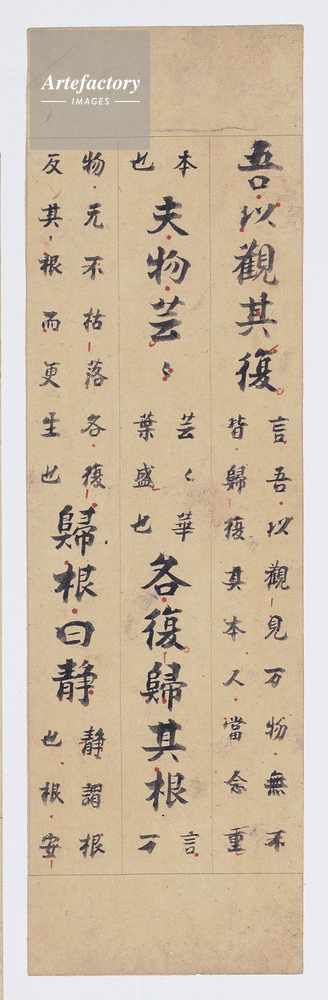 Artefactory
IMAGES
吾以觀其復
言吾以觀見万物無不
皆歸復其本人當念重
本
也
夫物芸〻
芸〻華
葉盛也
各復歸其根
言
万
物无不枯落各復
反其根而更生也
歸根曰静
静謂根
也根安